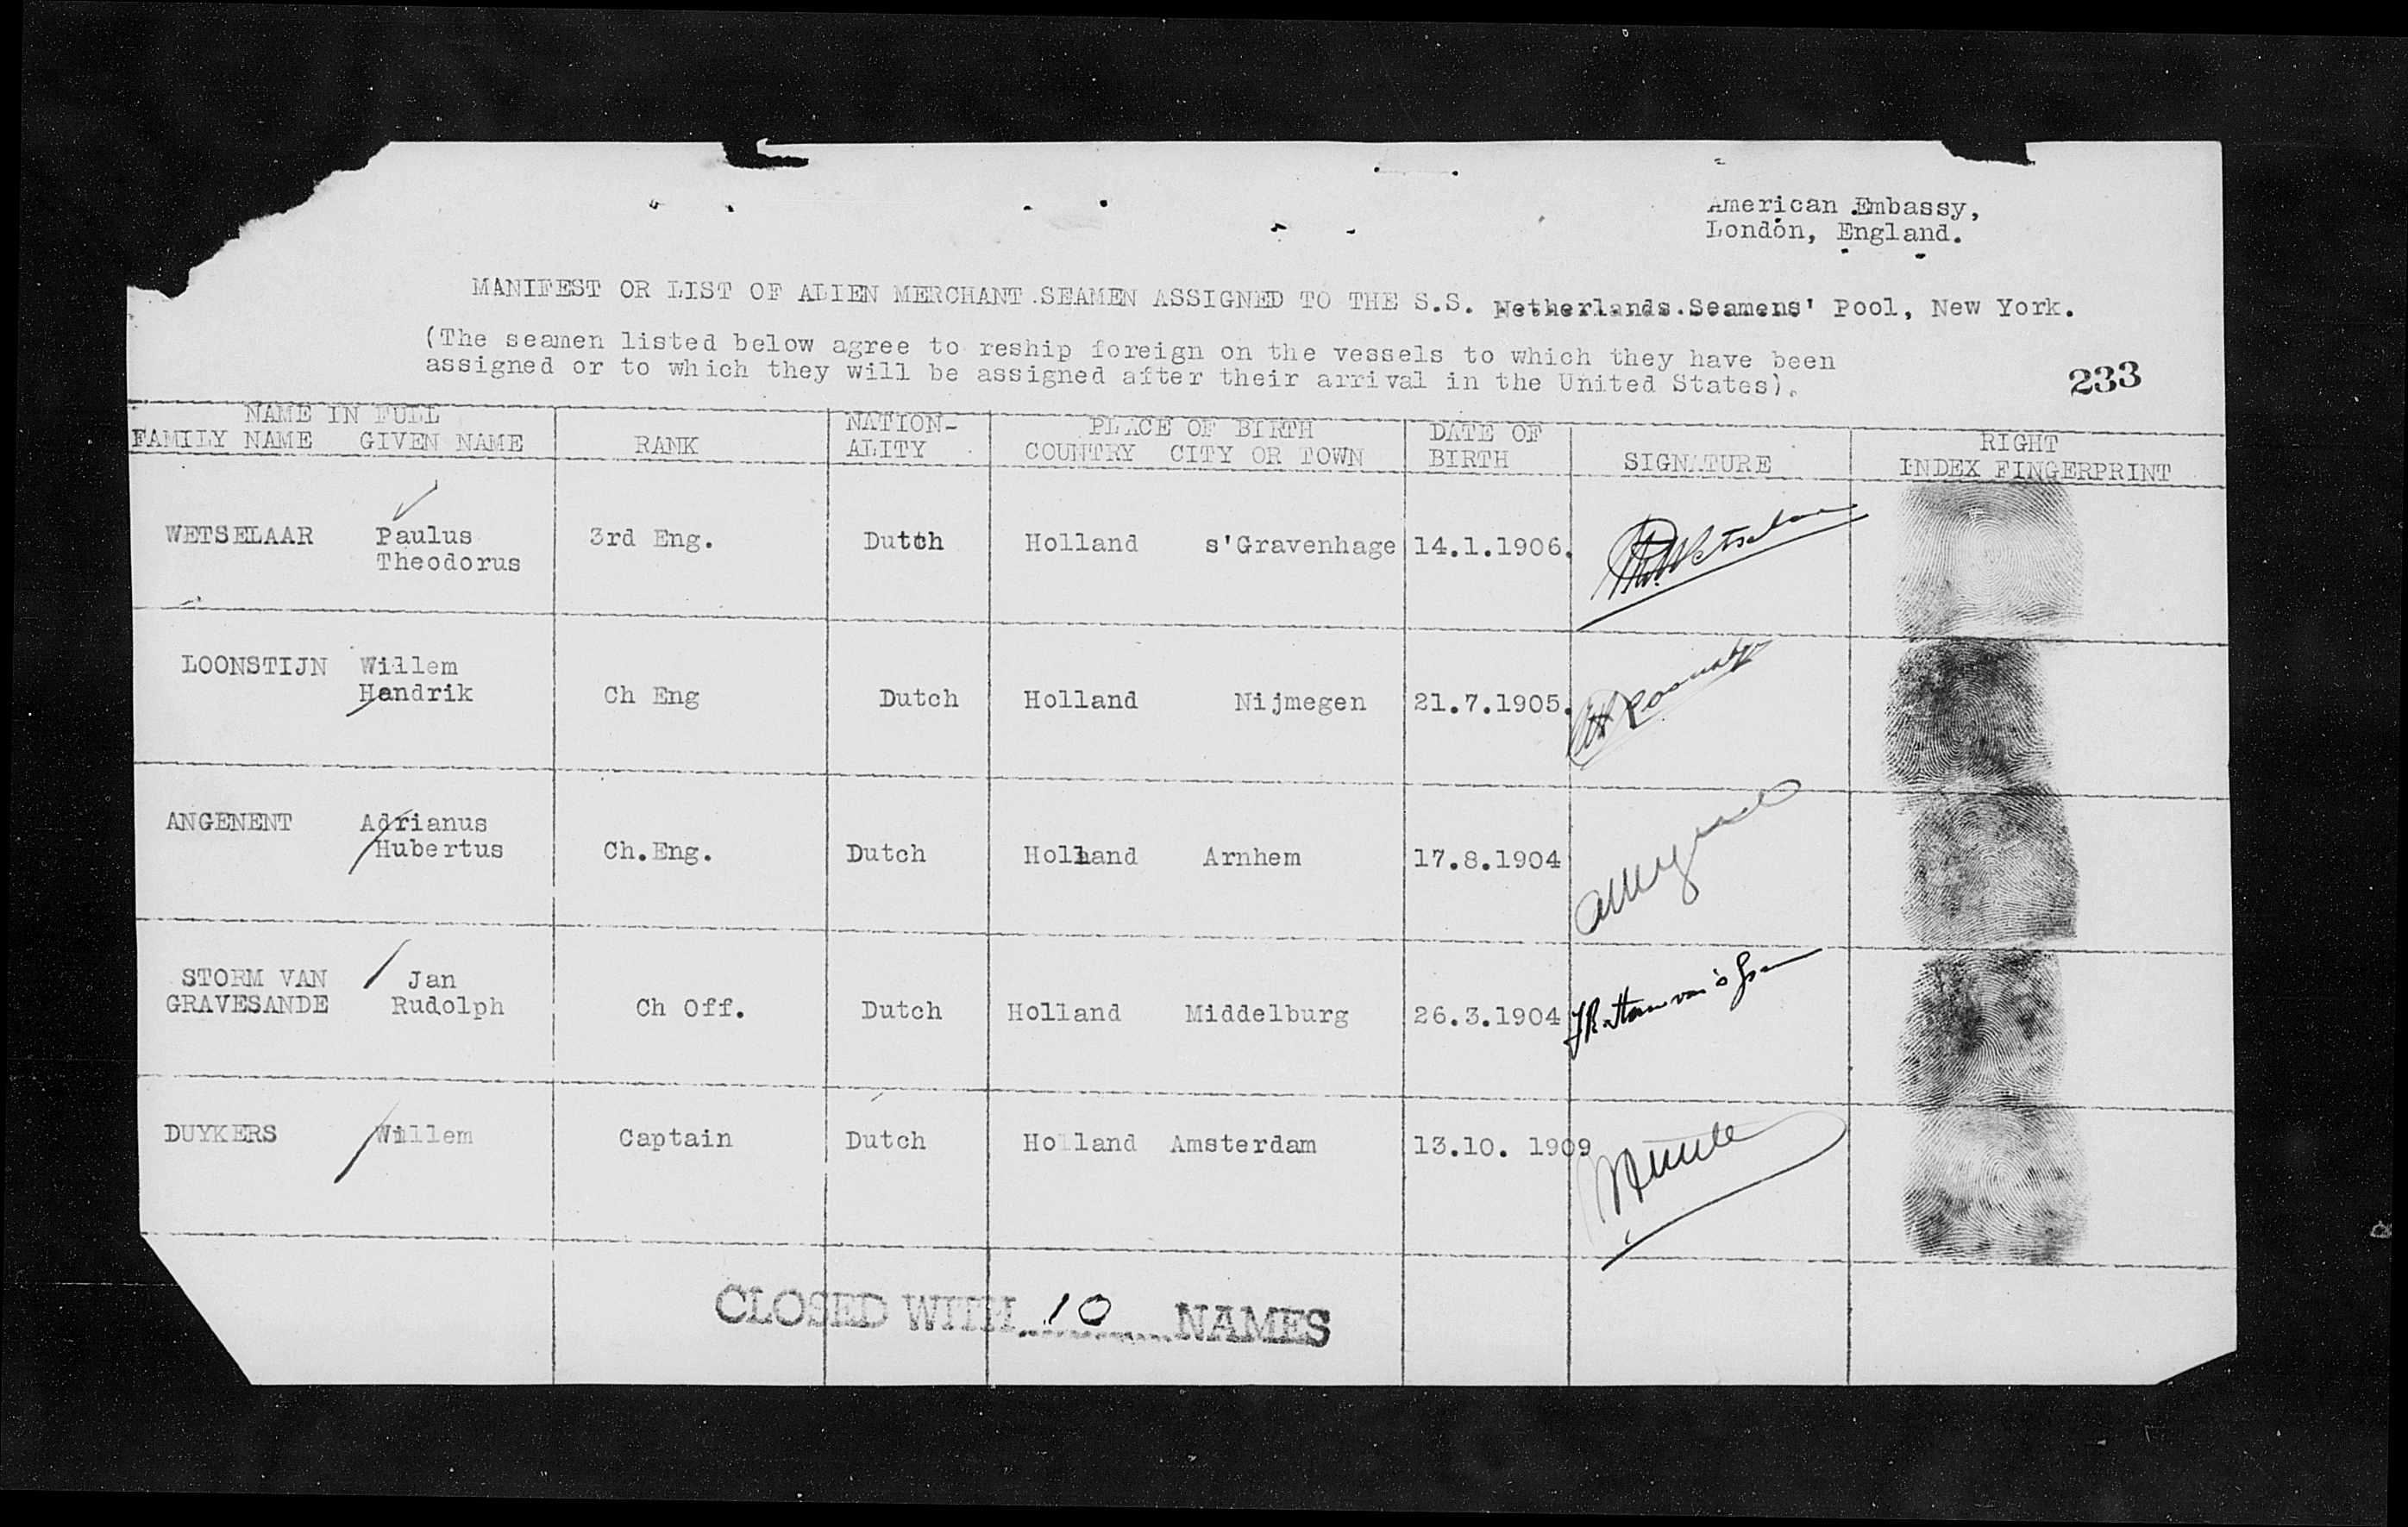 American Embassy,
London, England.
MANIFEST OR LIST OF ALIEN MERCHANT SEAMEN ASSIGNED TO THE S.S. Netherlands Seamens' Pool, New York.
(The seamen listed below agree to reship foreign on the vessels to which they have been
assigned or to which they will be assigned after their arrival in the United States).
233
NAME IN FULL
FAMILY NAME GIVEN NAME
RANK
NATION-
ALITY
PLACE OF BIRTH
COUNTRY CITY OR TOWN
DATE OF
BIRTH
SIGNATURE
RIGHT
INDEX FINGERPRINT
WETSELAAR Paulus 3rd Eng. Dutch Holland s'Gravenhage 14.1.1906.
Theodorus
LOONSTIJN Willem
Hendrik Ch Eng Dutch Holland Nijmegen 21.7.1905.
ANGENENT Adrianus
Hubertus Ch.Eng. Dutch Holland Arnhem 17.8.1904
STORM VAN Jan
GRAVESANDE Rudolph Ch Off. Dutch Holland Middelburg 26.3.1904
DUYKERS Willem Captain Dutch Holland Amsterdam 13.10. 1909
CLOSED WITH 10 NAMES